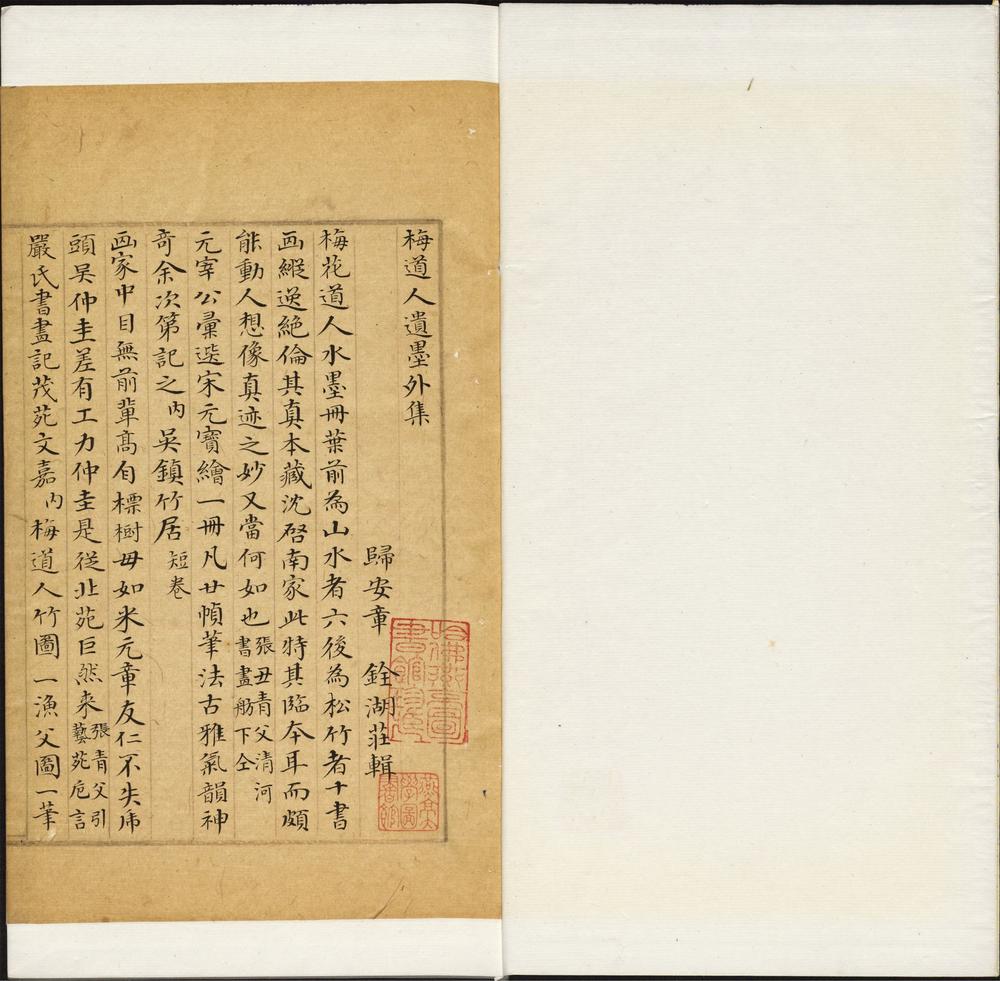 梅道人遺墨外集
歸安章 銓湖莊輯
梅花道人水墨冊葉前為山水者六後為松竹者十書
画縱逸絶倫其真本藏沈啓南家此特其臨本耳而頗
能動人想像真迹之妙又當何如也張丑青父清河書畫舫下仝
元宰公彙选宋元寶繪一冊凡廿幀筆法古雅氣韻神
奇余次第記之内吳鎮竹居短卷
画家中目無前輩髙自標樹毋如米元章友仁不失虎
頭吴仲圭差有工力仲圭是從北苑巨然来張青父引藝苑卮言
嚴氏書畫記茂苑文嘉内梅道人竹圖一漁父圖一筆
哈佛燕京圖
書館珍藏印